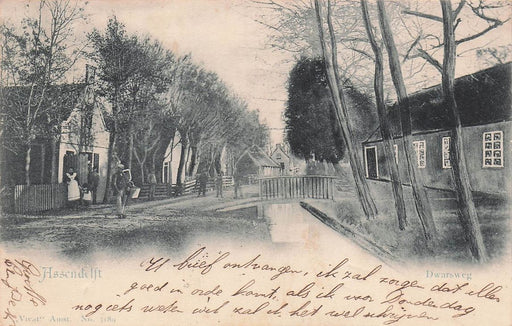 Assendelft
Dwarsweg
U brief ontvangen, ik zal zorgen dat alles
goed in orde komt, als ik voor Donderdag
nog iets weten wil zal ik het wel schrijven
"Vivat" Amst. No. 5189